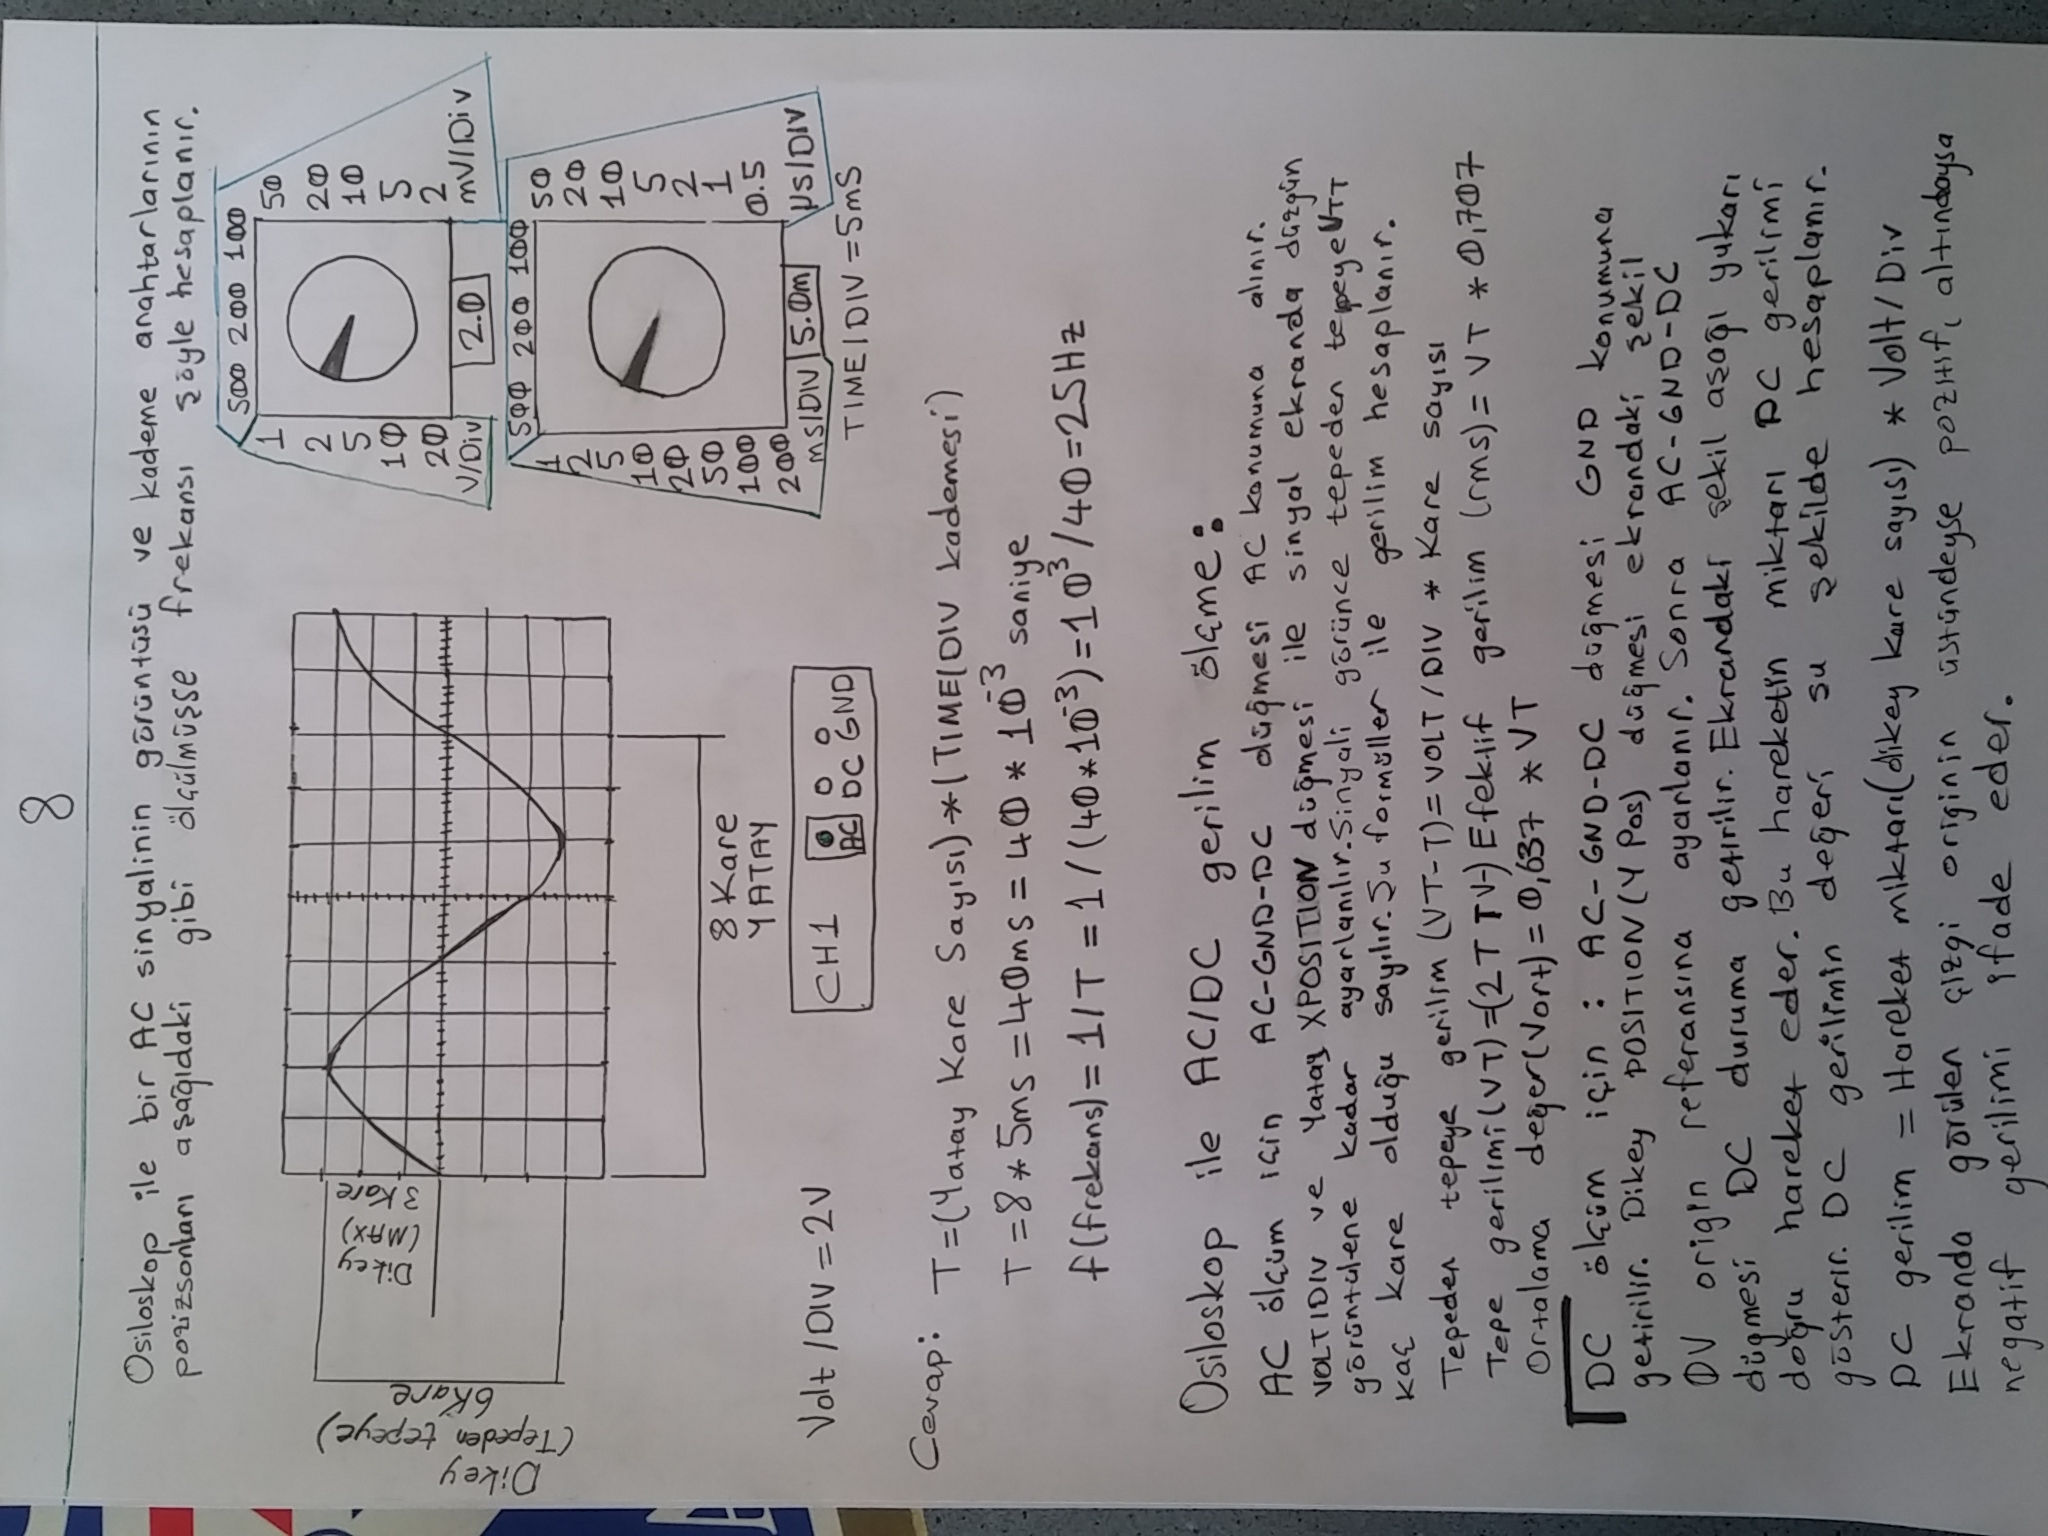 8
Osiloskop ile bir AC sinyalinin görüntüsü ve kademe anahtarlarının
pozizsonları aşağıdaki gibi ölçülmüşse frekansı şöyle hesaplanır.
Dikey
(Tepeden tepeye)
6Kare
Dikey
(MAX)
3 Kare
8 Kare
YATAY
500 200 100
1
2
5
10
20
V/Div
50
20
10
5
2
mV/Div
2.0
500 200 100
1
2
5
10
20
50
100
200
ms/DIV
50
20
10
5
2
1
0.5
µs/DIV
5.0m
TIME/DIV = 5mS
Volt /DIV = 2V
CH1 AC DC GND
Cevap:
T=(Yatay Kare Sayısı)*(TIME/DIV kademesi)
T=8*5ms=40ms=40*10⁻³ saniye
f(frekans)=1/T=1/(40*10⁻³)=10³/40=25Hz
Osiloskop ile AC/DC gerilim ölçme:
AC ölçüm için AC-GND-DC düğmesi AC konumuna alınır.
VOLT/DIV ve Yatay XPOSITION düğmesi ile sinyal ekranda düzgün
görüntülene kadar ayarlanılır. Sinyali görünce tepeden tepeye VTT
kaç kare olduğu sayılır. Şu formüller ile gerilim hesaplanır.
Tepeden tepeye gerilim (VT-T)= VOLT/DIV * Kare sayısı
Tepe gerilimi (VT)=(2TTV-) Efektif gerilim (rms)= VT * 0,707
Ortalama değer(Vort)= 0,637 * VT
DC ölçüm için : AC-GND-DC düğmesi GND konumuna
getirilir. Dikey POSITION (Y Pos) düğmesi ekrandaki şekil
0V origin referansına ayarlanır. Sonra AC-GND-DC
düğmesi DC duruma getirilir. Ekrandaki şekil aşağı yukarı
doğru hareket eder. Bu hareketin miktarı DC gerilimi
gösterir. DC gerilimin değeri su şekilde hesaplanır.
DC gerilim = Hareket miktarı(dikey kare sayısı) * Volt/Div
Ekranda görülen çizgi originin üstündeyse pozitif, altındaysa
negatif gerilimi ifade eder.